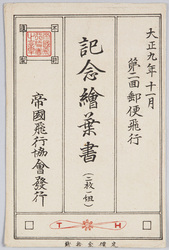 大正九年十一月
第二回郵便飛行
記念繪葉書
(二枚一組)
帝國飛行協會發行
T H